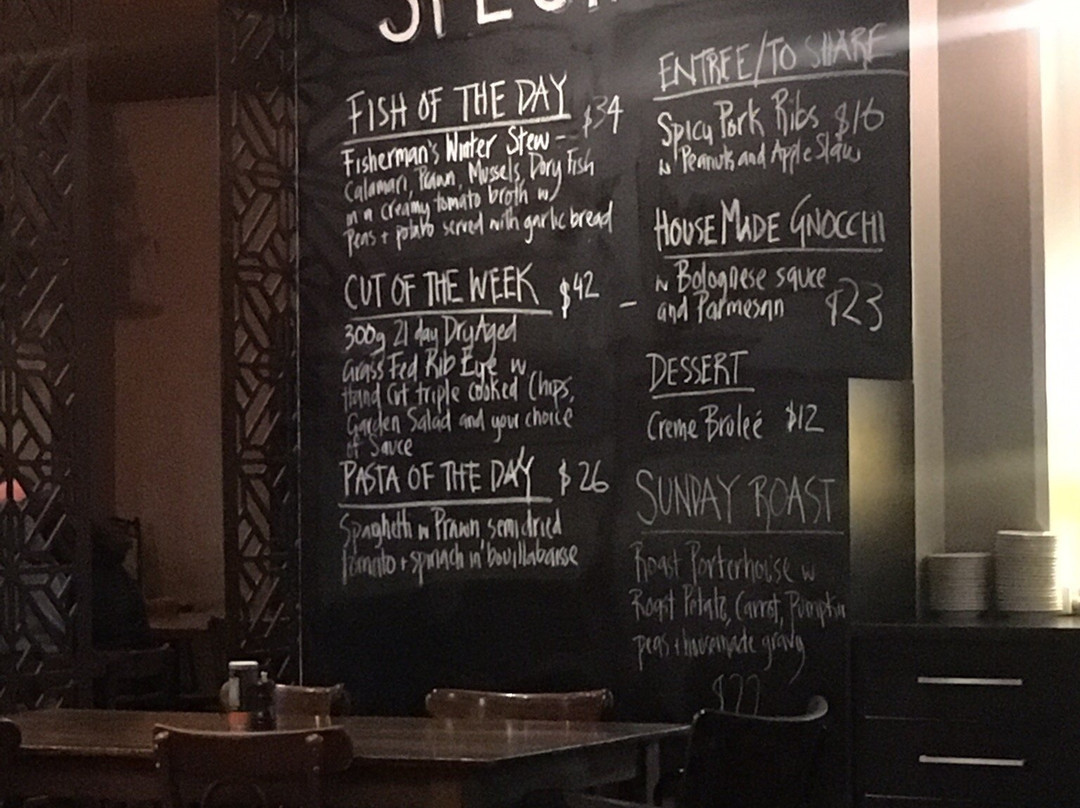 FISH OF THE DAY $34
Fisherman's Winter Stew -
Calamari, Prawn, Mussels, Dory Fish
in a creamy tomato broth w
Peas + potato served with garlic bread
CUT OF THE WEEK $42 -
300g 21 day Dry Aged
Grass Fed Rib Eye w
Hand Cut triple cooked Chips,
Garden Salad and your choice
of Sauce
PASTA OF THE DAY $26
Spaghetti w Prawn, semi dried
tomato + spinach in bouillabaisse
ENTREE/TO SHARE
Spicy Pork Ribs $16
w Peanuts and Apple Slaw
HOUSE MADE GNOCCHI
w Bolognese sauce
and Parmesan $23
DESSERT
Creme Broleé $12
SUNDAY ROAST
Roast Porterhouse w
Roast Potato, Carrot, Pumpkin
peas + housemade gravy